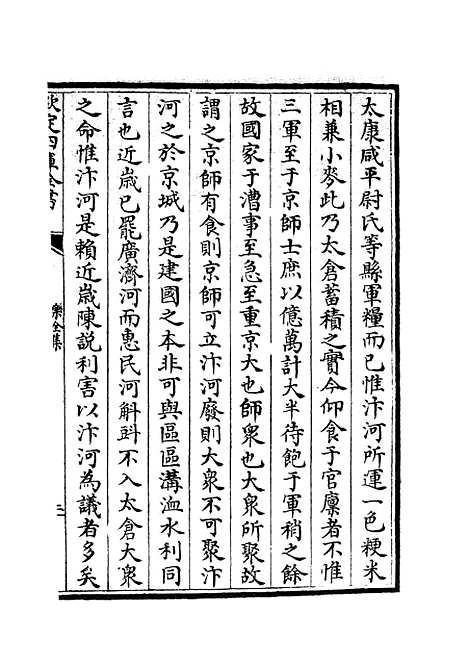 太康咸平尉氏等縣軍糧而已惟汴河所運一色粳米
相兼小麥此乃太倉蓄積之實今仰食于官廪者不惟
三軍至于京師士庶以億萬計大半待飽于軍稍之餘
故國家于漕事至急至重京大也師衆也大衆所聚故
謂之京師有食則京師可立汴河廢則大衆不可聚汴
河之於京城乃是建國之本非可與區區溝洫水利同
言也近嵗已罷廣濟河而惠民河斛㪷不入太倉大衆
之命惟汴河是賴近嵗陳説利害以汴河為議者多矣
欽定四庫全書
樂全集
三